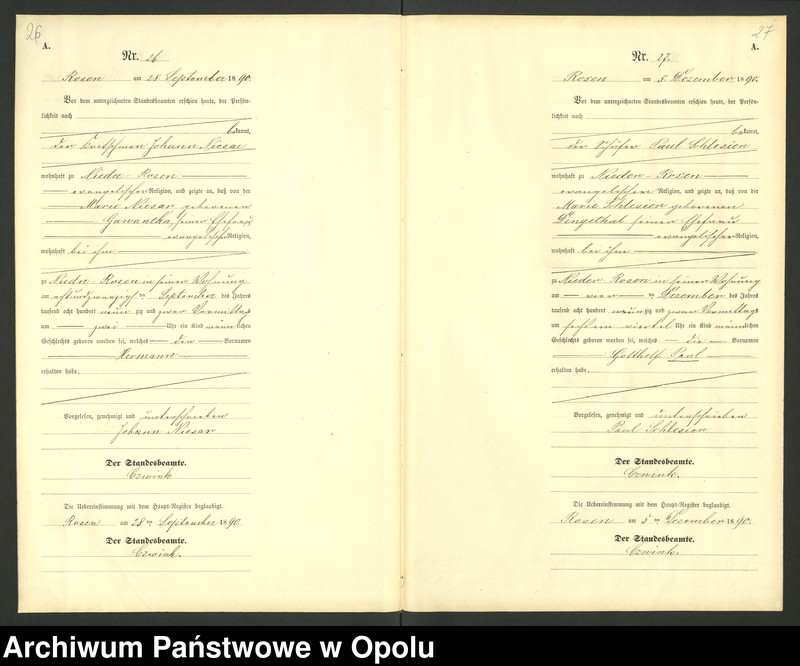 26
A.
Nr. 26
Rosen am 28 September 1890.
Vor dem unterzeichneten Standesbeamten erschien heute, der Persön-
lichkeit nach
bekannt,
der Johann Niesar
wohnhaft zu Nieder-Rosen
evangelischer Religion, und zeigte an, daß von der
Marie Niesar geborenen
seiner Ehefrau
evangelischer Religion,
wohnhaft bei ihm
zu Nieder-Rosen in seiner Wohnung
am achtundzwanzig ten September des Jahres
tausend acht hundert neunzig und zwar Vormittags
um zwei Uhr ein Kind männlichen
Geschlechts geboren worden sei, welches den Vornamen
Hermann
erhalten habe.
Vorgelesen, genehmigt und unterschrieben
Johann Niesar
Der Standesbeamte.
Czwink
Die Uebereinstimmung mit dem Haupt-Register beglaubigt.
Rosen am 28 ten September 1890.
Der Standesbeamte.
Czwink.
27
A.
Nr. 27.
Rosen am 5. Dezember 1890.
Vor dem unterzeichneten Standesbeamten erschien heute, der Persön-
lichkeit nach
bekannt,
der Schäfer Paul Schlesien
wohnhaft zu Nieder-Rosen
evangelischen Religion, und zeigte an, daß von der
Marie Schlesien geborenen
seiner Ehefrau
evangelischer Religion,
wohnhaft bei ihm
zu Nieder-Rosen in seiner Wohnung
am vier ten Dezember des Jahres
tausend acht hundert neunzig und zwar Vormittags
um viertel Uhr ein Kind männlichen
Geschlechts geboren worden sei, welches die Vornamen
Gotthelf Paul
erhalten habe.
Vorgelesen, genehmigt und unterschrieben
Paul Schlesien
Der Standesbeamte.
Czwink.
Die Uebereinstimmung mit dem Haupt-Register beglaubigt.
Rosen am 5 ten Dezember 1890.
Der Standesbeamte.
Czwink.
Archiwum Państwowe w Opolu